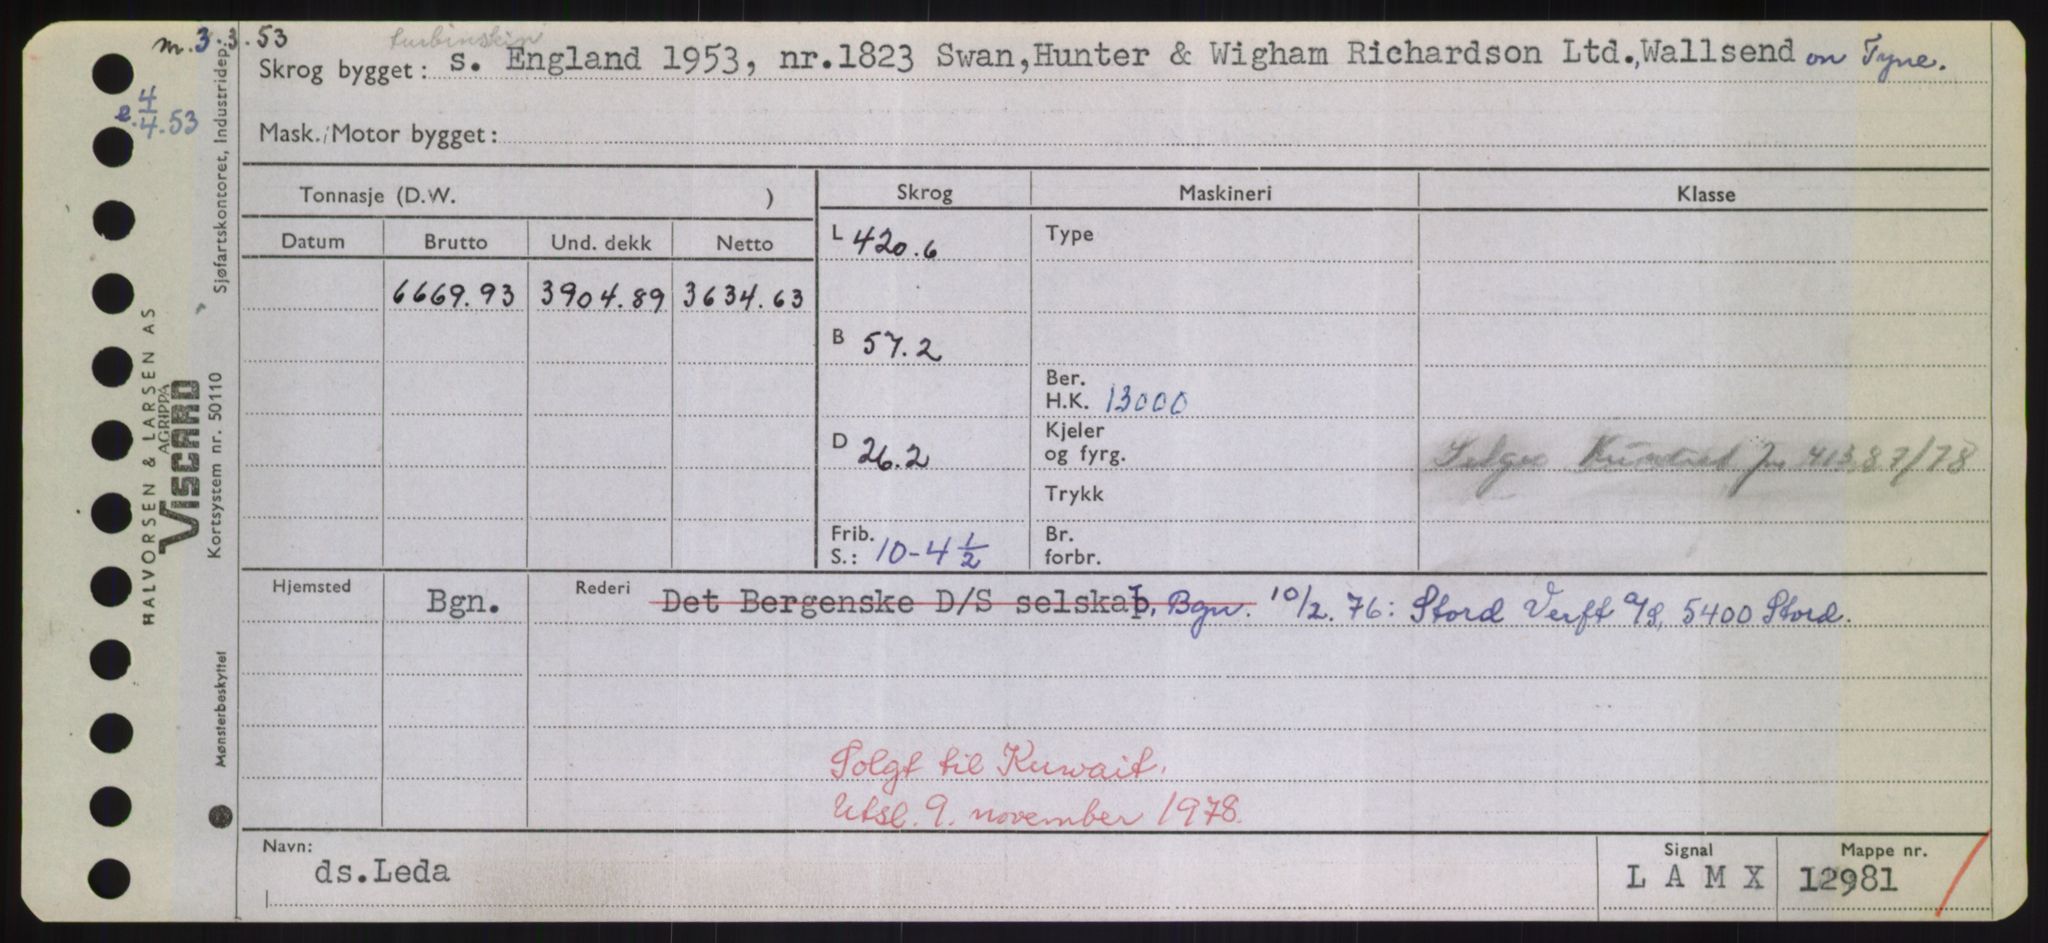 m. 3.3.53
e. 4/4.53
turbinskip
Skrog bygget: s. England 1953, nr.1823 Swan,Hunter & Wigham Richardson Ltd.,Wallsend on Tyne.
Mask./Motor bygget:
Tonnasje (D.W. )
Skrog
Maskineri
Klasse
Datum Brutto Und. dekk Netto
L 420.6
Type
6669.93 3904.89 3634.63
B 57.2
Ber. H.K. 13000
D 26.2
Kjeler og fyrg.
Selges Kuwait for 413,87/78
Trykk
Frib. S.: 10-4 1/2
Br. forbr.
Hjemsted Bgn. Rederi Det Bergenske D/S selskab, Bgn. 10/2. 76: Stord Verft a/s, 5400 Stord.
Solgt til Kuwait.
Utsl. 9. november 1978.
Navn: ds.Leda
Signal L A M X
Mappe nr. 12981
HALVORSEN & LARSEN AS
AGRIPPA
VISCARD
Sjøfartskontoret, Industridep.
Kortsystem nr. 50110
Mønsterbeskyttet